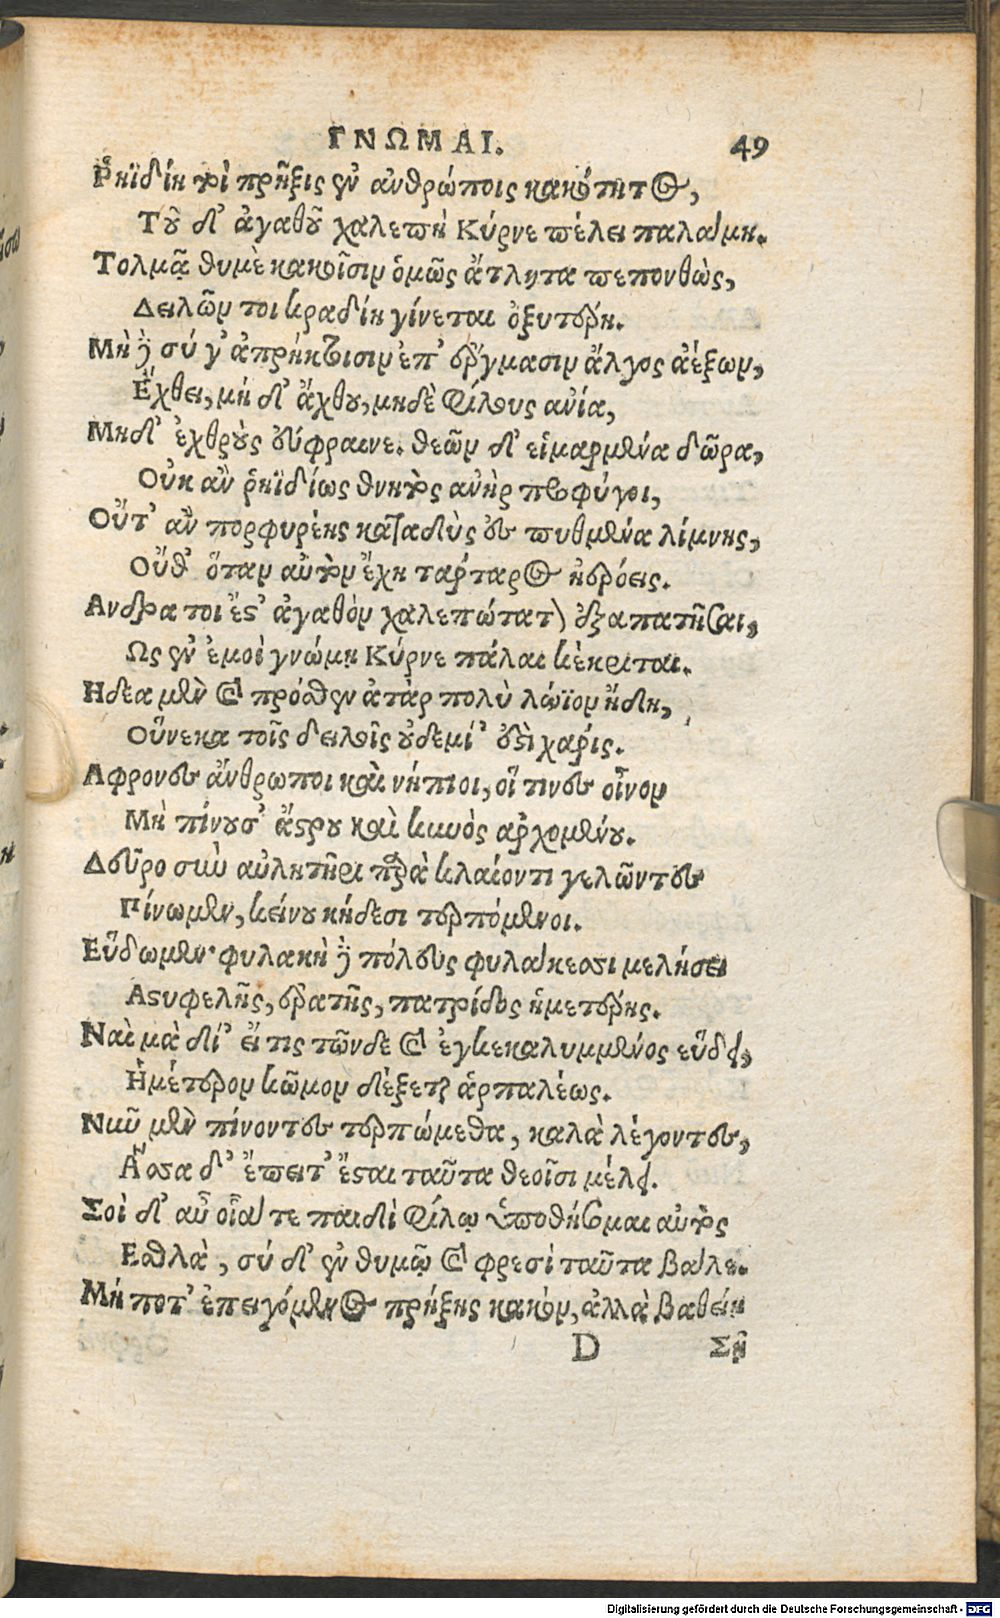 ΓΝΩΜΑΙ. 49
Ῥηϊδίη τοι πρῆξις ἐν ἀνθρώποις κακότητος,
Τοῦ δ' ἀγαθοῦ χαλεπὴ Κύρνε πέλει παλάμη.
Τολμᾷ θυμὲ κακοῖσιν ὁμῶς ἄτλητα πεπονθὼς,
Δειλῶν τοι κραδίη γίνεται ὀξυτέρη.
Μὴ δὲ σύ γ' ἀπρήκτοισιν ἐπ' ἔργμασιν ἄλγος ἀέξων,
Ἔχθει, μή δ' ἄχθου, μηδὲ φίλους ἀνία,
Μηδ' ἐχθροὺς εὔφραινε. θεῶν δ' εἱμαρμένα δῶρα,
Οὐκ ἂν ῥηϊδίως θνητὸς ἀνὴρ προφύγοι,
Οὔτ' ἂν πορφυρέης καταδὺς ἐς πυθμένα λίμνης,
Οὔθ' ὅταν αὐτὸν ἔχῃ τάρταρος ἠερόεις.
Ανδρα τοι ἔστ' ἀγαθὸν χαλεπώτατον ἐξαπατῆσαι,
Ως ἐν ἐμοὶ γνώμη Κύρνε πάλαι κέκριται.
Ηδεα μὲν καὶ πρόσθεν ἀτὰρ πολὺ λώϊον ἤδη,
Οὕνεκα τοῖς δειλοῖς οὐδεμί' ἐστὶ χάρις.
Αφρονες ἄνθρωποι καὶ νήπιοι, οἵ τινες οἶνον
Μὴ πίνουσ' ἄστρου καὶ κυνὸς ἀρχομένου.
Δεῦρο σὺν αὐλητῆρι παρὰ κλαίοντι γελῶντες
Πίνωμεν, κείνου κήδεσι τερπόμενοι.
Εὕδωμεν· φυλακὴ δὲ πόλευς φυλάκεσσι μελήσει
Αστυφελῆς, ἐρατῆς, πατρίδος ἡμετέρης.
Ναὶ μὰ δί' εἴ τις τῶνδε καὶ ἐγκεκαλυμμένος εὕδει,
Ἡμέτερον κῶμον δέξεται ἁρπαλέως.
Νῦν μὲν πίνοντες τερπώμεθα, καλὰ λέγοντες,
Ἅσσα δ' ἔπειτ' ἔσται ταῦτα θεοῖσι μέλει.
Σοὶ δ' αὖ οἷά τε παιδὶ φίλῳ ὑποθήσομαι αὐτὸς
Εσθλὰ, σύ δ' ἐν θυμῷ καὶ φρεσὶ ταῦτα βάλε.
Μή ποτ' ἐπειγόμενος πρήξης κακὸν, ἀλλὰ βαθείη
D Σῇ
Digitalisierung gefördert durch die Deutsche Forschungsgemeinschaft - DFG